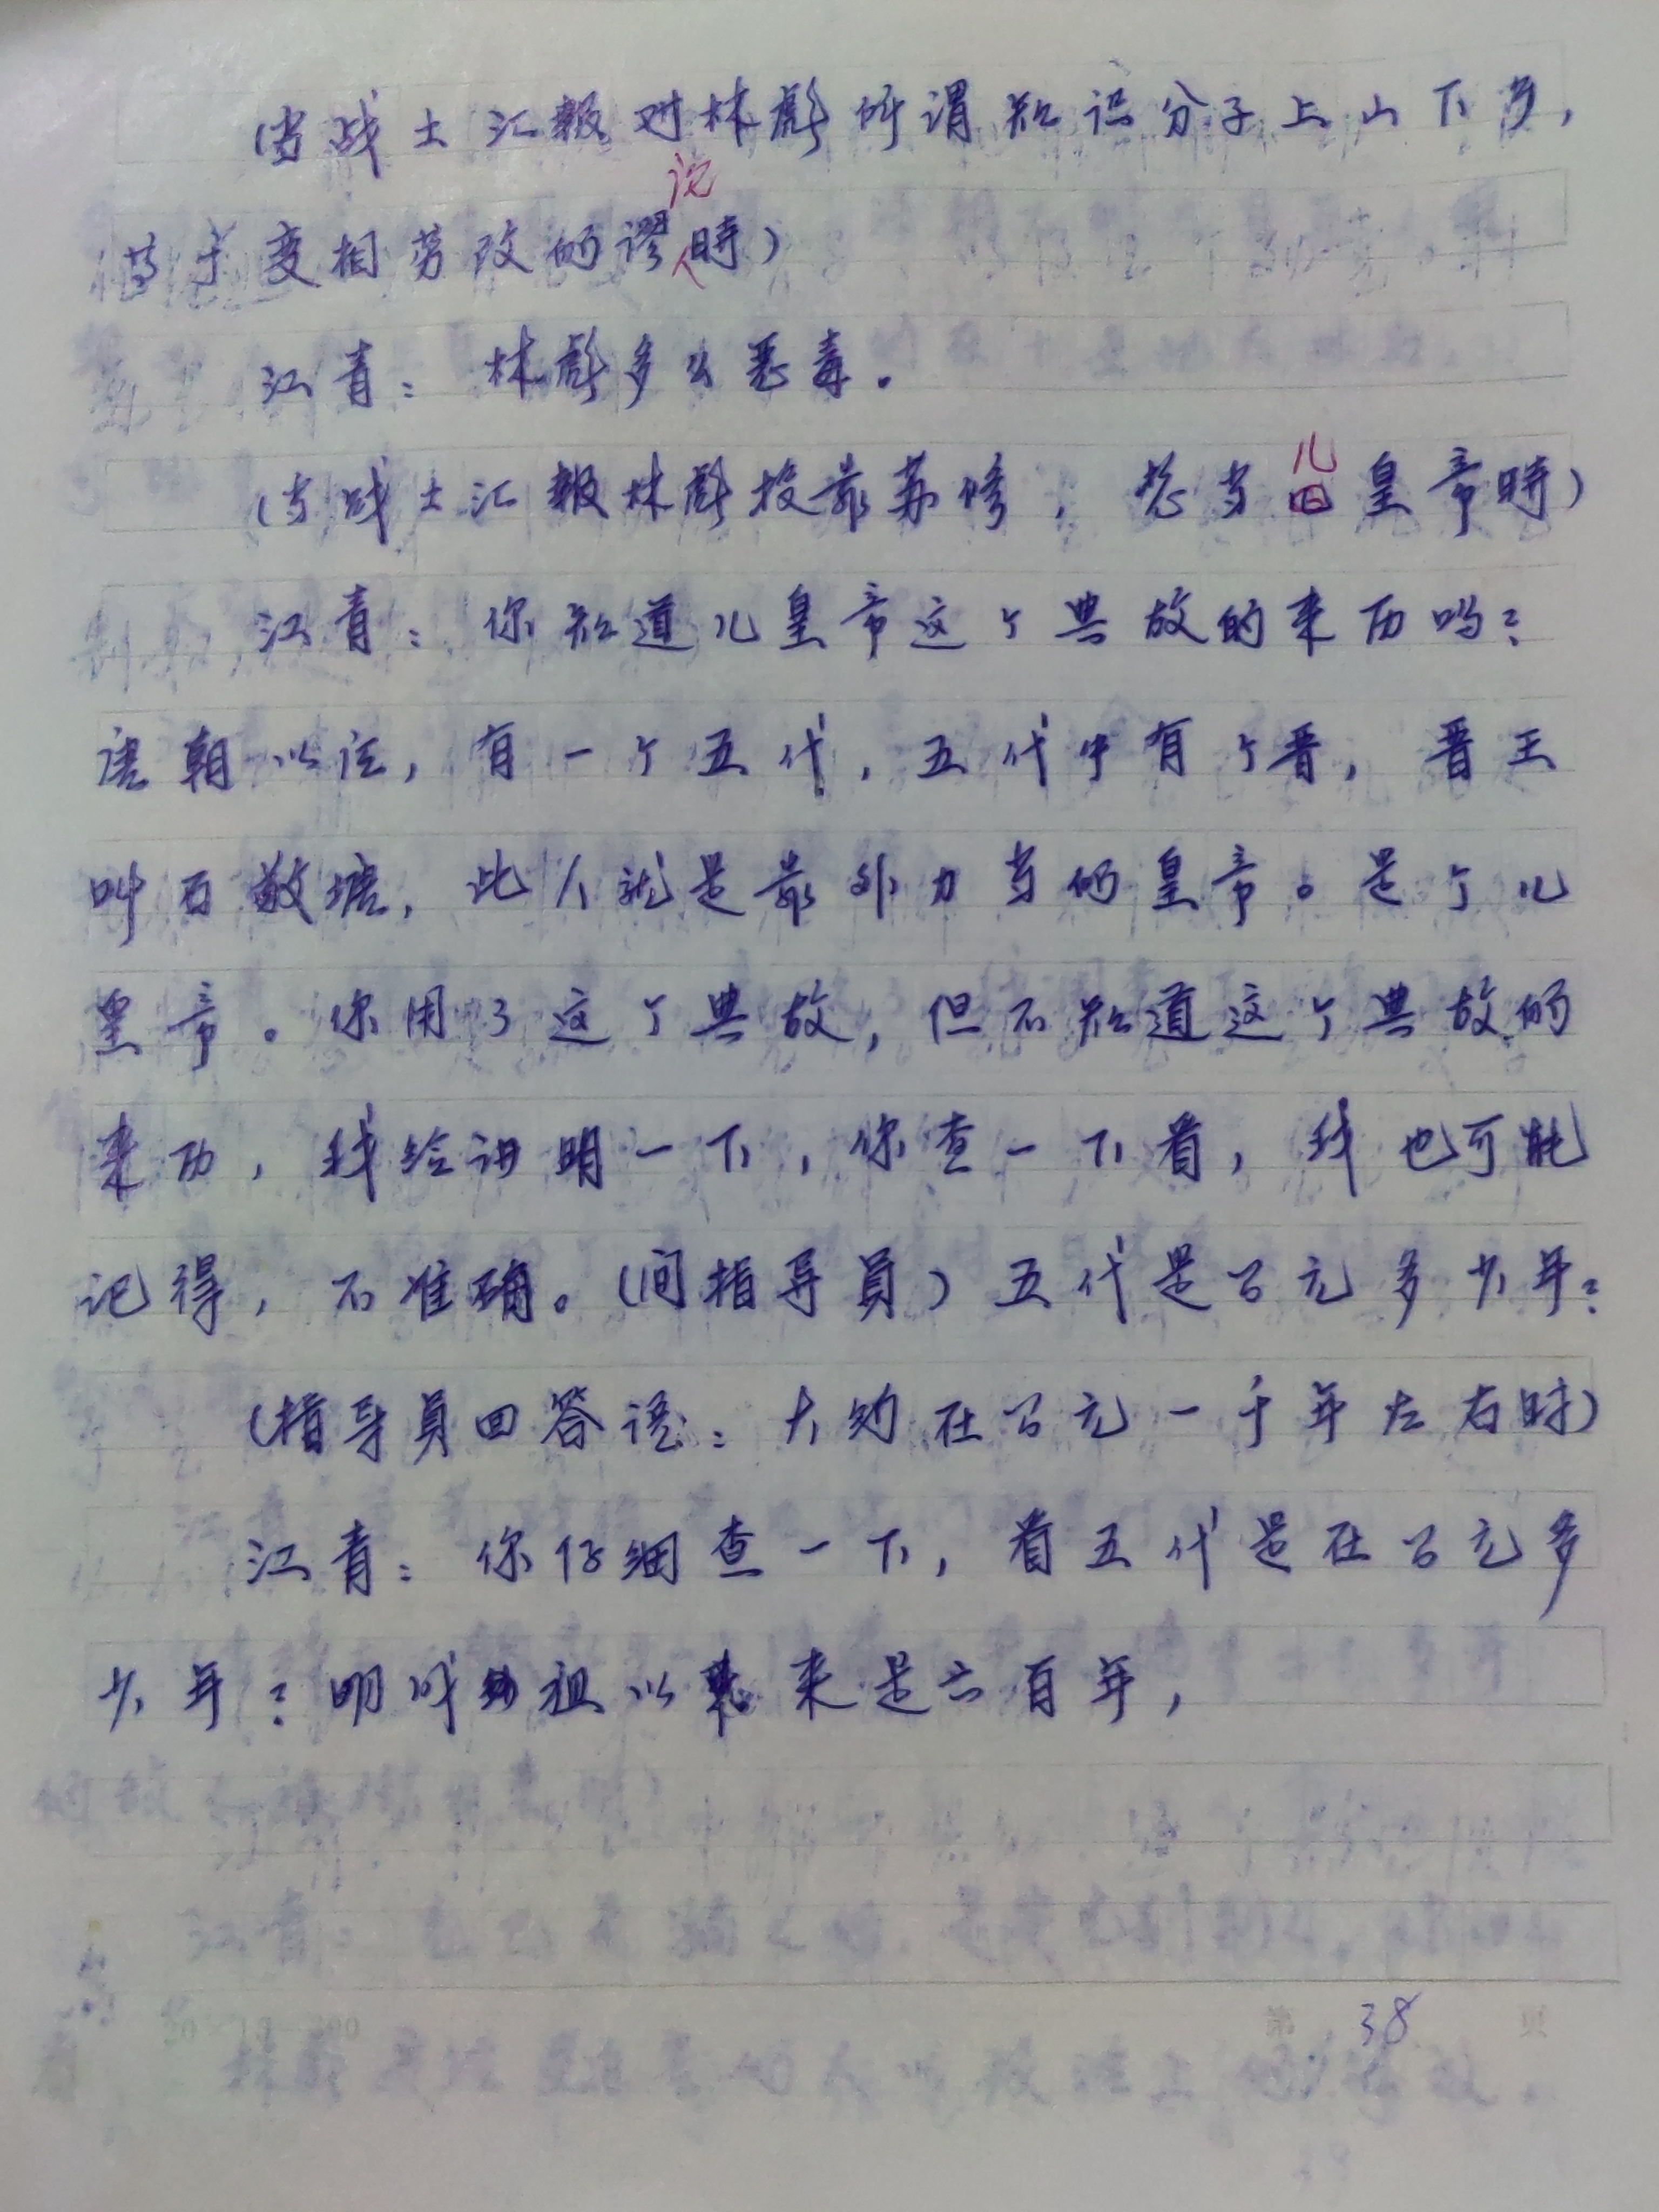 (当战士汇報对林彪所谓知识分子上山下乡，
等于变相劳改的谬论時)
江青：林彪多么恶毒。
(当战士汇報林彪投靠苏修，想当儿皇帝時)
江青：你知道儿皇帝这个典故的来历吗？
唐朝以后，有一个五代，五代中有个晋，晋王
叫石敬塘，此人就是靠外力当的皇帝。是个儿
皇帝。你用了这个典故，但不知道这个典故的
来历，我给讲明一下，你查一下看，我也可能
记得，不准确。(间指导員)五代是公元多少年？
(指导員回答说：大约在公元一千年左右时)
江青：你仔细查一下，看五代是在公元多
少年？明成祖以来是六百年，
38
第 页